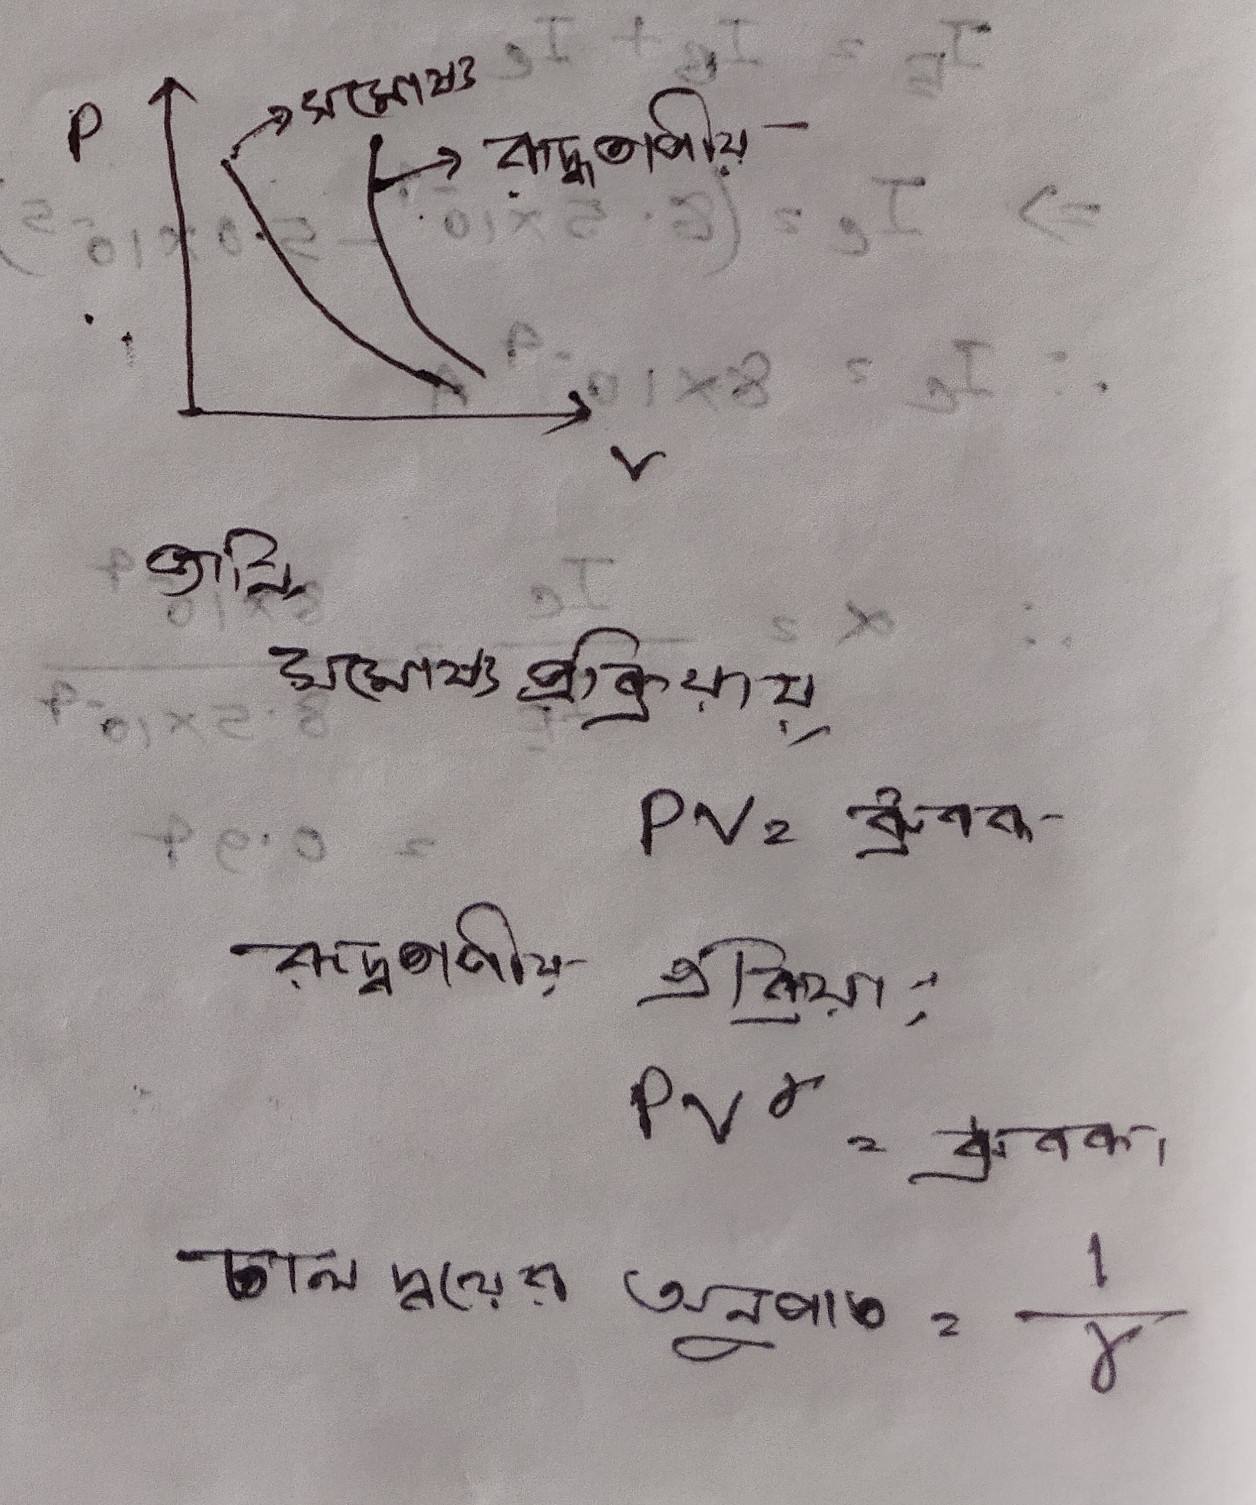 P
সমোষ্ণ
রূদ্ধতাপীয়
V
জানি,
সমোষ্ণ প্রক্রিয়ায়,
PV = ধ্রুবক
রূদ্ধতাপীয় প্রক্রিয়া:
PV^γ = ধ্রুবক।
ঢাল দ্বয়ের অনুপাত = 1/γ